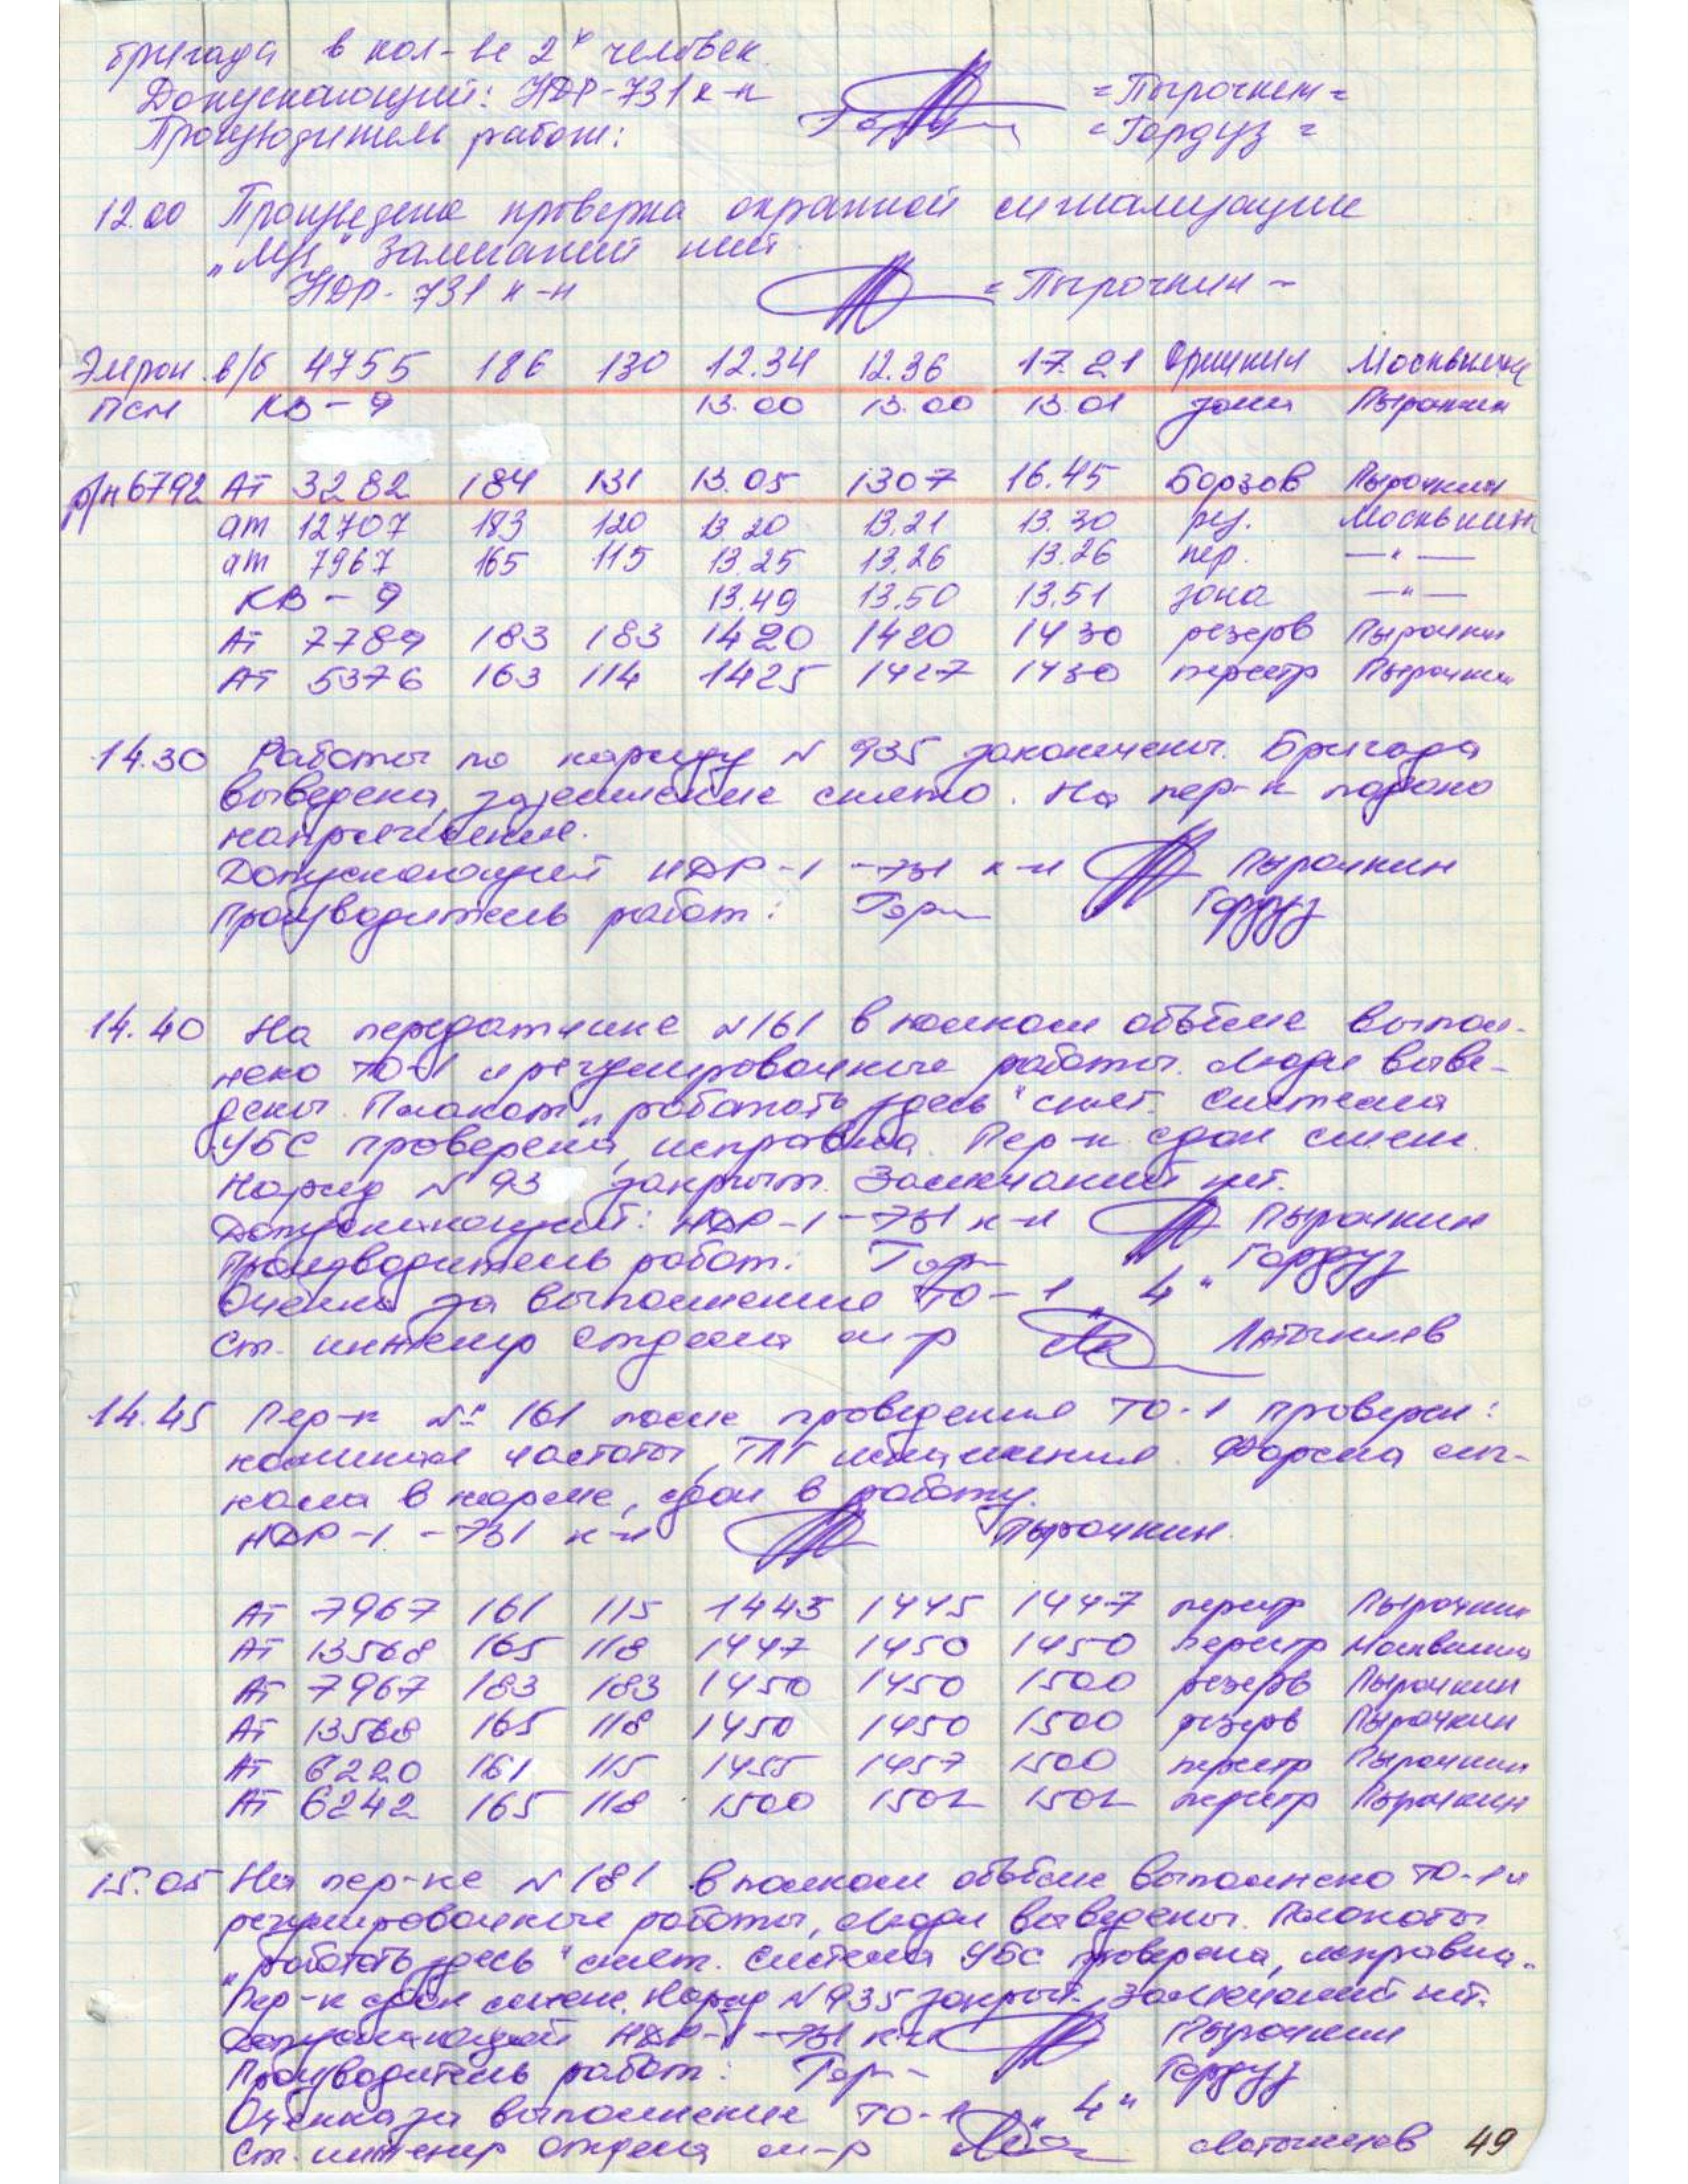 бригада в кол-ве 2х человек.
Допускающий: НДР-731 к-н =Пырочкин=
Производитель работ: =Гордуз=
12.00 Произведена проверка охранной сигнализации
Замечаний нет.
НДР-731 к-н =Пырочкин-
в/б 4755 186 130 12.34 12.36 17.21 Москвикин
КВ-9 13.00 13.00 13.01 зона Пырочкин
р/н 6792 АТ 3282 184 131 13.05 1307 16.45 Борзов Пырочкин
ат 12707 183 120 13.20 13.21 13.30 рез. Москвикин
ат 7967 165 115 13.25 13.26 13.26 пер. —"—
КВ-9 13.49 13.50 13.51 зона —"—
АТ 7789 183 183 1420 1420 1430 резерв Пырочкин
АТ 5376 163 114 1425 1427 1430 перестр Пырочкин
14.30 Работы по наряду N 935 закончены. Бригада
выведена, заземление снято. На пер-к подано
напряжение.
Допускающий НДР-1-731 к-н Пырочкин
Производитель работ: Гордуз
14.40 На передатчике N161 в полном объёме выпол-
нено ТО-1 и регулировочные работы. Люди выве-
дены. Плакат „работать здесь" снят. Система
УБС проверена, исправна. Пер-к сдан смене.
Наряд N 93 закрыт. Замечаний нет.
Допускающий: НДР-1-731 к-н Пырочкин
Производитель работ: Гордуз
Оценка за выполнение ТО-1 „4"
Ст. инженер отдела м-р Латышев
14.45 Пер-к № 161 после проведения ТО-1 проверен:
частоты, ТЛГ Форма сиг-
нала в норме, сдан в работу.
НДР-1-731 к-н Пырочкин.
АТ 7967 161 115 1443 1445 1447 перестр Пырочкин
АТ 13568 165 118 1447 1450 1450 перестр Москвикин
АТ 7967 183 183 1450 1450 1500 резерв Пырочкин
АТ 13568 165 118 1450 1450 1500 резерв Пырочкин
АТ 6220 161 115 1455 1457 1500 перестр Пырочкин
АТ 6242 165 118 1500 1502 1502 перестр Пырочкин
15.05 На пер-ке N 181 в полном объёме выполнено ТО-1 и
регулировочные работы, люди выведены. Плакаты
„работать здесь" снят. Система УБС проверена, исправна.
Пер-к сдан смене. Наряд N 935 закрыт. Замечаний нет.
Допускающий НДР-1-731 к-н Пырочкин
Производитель работ: Гордуз
Оценка за выполнение ТО-1 „4"
Ст. инженер отдела м-р Латышев 49